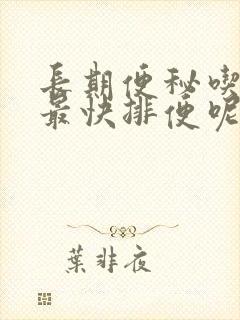 長期便秘喫
最快排便呢
葉非夜